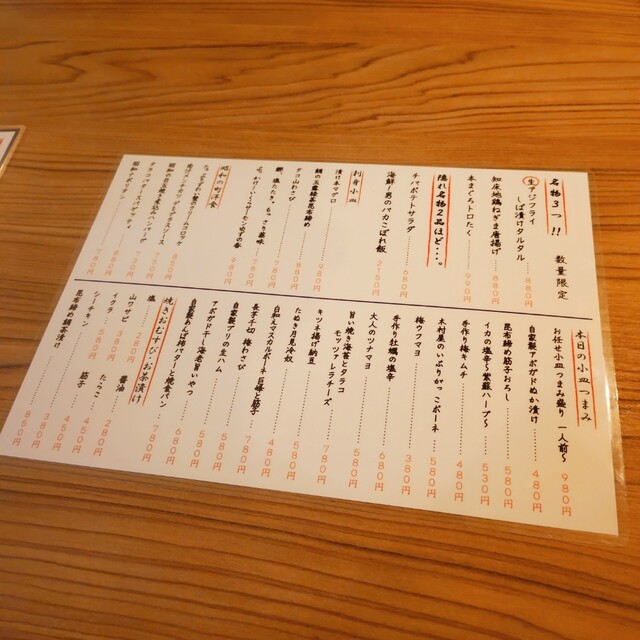 名物3つ!! 数量限定
生アジフライ
しば漬けタルタル 880円
知床地鶏ねぎま唐揚げ 880円
本まぐろトロたく 990円
隠れ名物2品ほど…。
チバポテトサラダ 680円
海鮮!男のバカこぼれ飯 2150円
刺身小皿
漬け本マグロ 980円
鯛の玉露緑茶昆布締め 880円
タコ山わさび 780円
昭和の町洋食
本日の小皿つまみ
お任せ小皿つまみ盛り 一人前〜 980円
自家製アボガドぬか漬け 480円
昆布締め筋子おろし 580円
イカの塩辛〜紫蘇ハーブ〜 530円
手作り梅キムチ 480円
木村屋のいぶりがっこボーネ 580円
梅ウフマヨ 380円
手作り牡蠣の塩辛 680円
大人のツナマヨ 580円
旨い焼き海苔とタラコ
モッツァレラチーズ 780円
キツネ揚げ納豆 580円
たぬき月見冷奴 480円
白和えマスカルポーネ 巨峰と筋子 780円
長芋千切 梅わさび 580円
自家製ブリの生ハム 580円
アボガド干し海老旨いやっ 680円
自家製あん肝バターと焼食パン 780円
焼きおむすび・お茶漬け
塩 280円 醤油 280円
山ワサビ 380円 たらこ 450円
イクラ 580円 筋子 450円
シーチキン 380円
昆布締め鯛茶漬け 850円